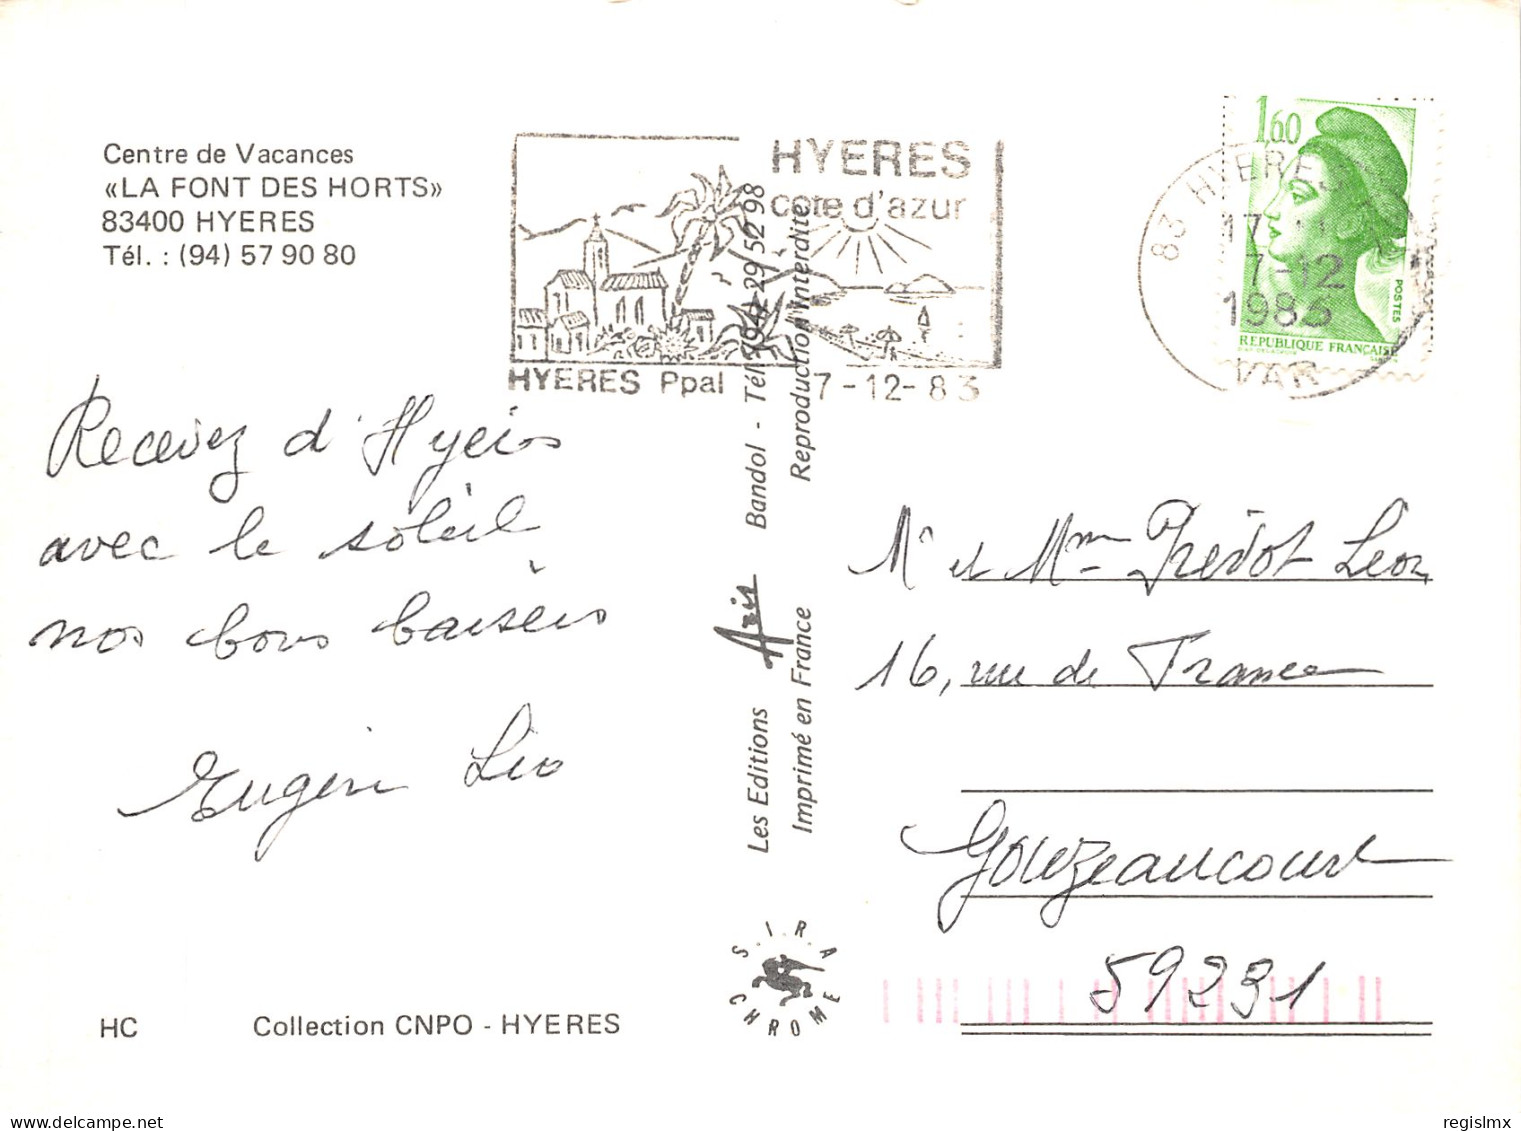 Centre de Vacances
«LA FONT DES HORTS»
83400 HYERES
Tél. : (94) 57 90 80
HYERES
cote d'azur
HYERES Ppal 7-12-83
1,60
POSTES
REPUBLIQUE FRANÇAISE
83 HYERES
17
7-12
1983
VAR
Recevez d'Hyères
avec le soleil
nos bons baisers
Eugène Léo
Les Editions Azir Bandol - Tél. (94) 29 52 98
Imprimé en France Reproduction Interdite
Mr et Mme Prévot Léon
16, rue de France
Gouzeaucourt
59231
S.I.R.A
CHROME
HC Collection CNPO - HYERES
regislmx